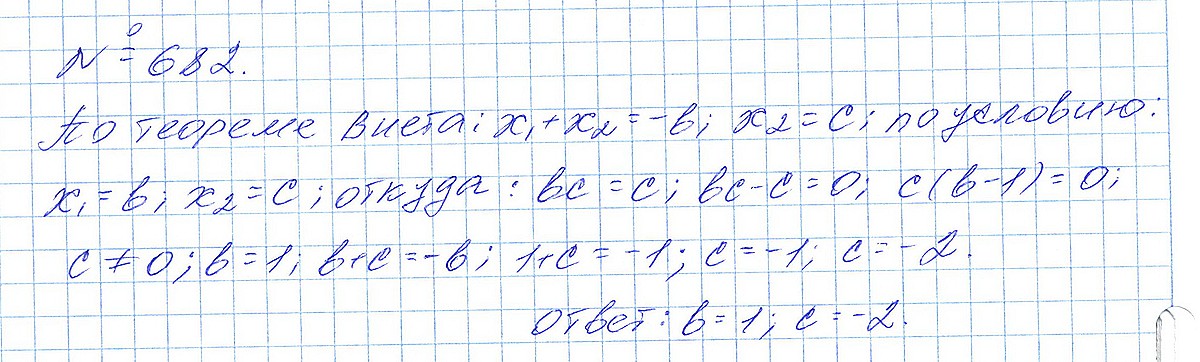 № 682.
По теореме Виета: x₁+x₂=-в; x₂=c; по условию:
x₁=в; x₂=c; откуда: вc=c; вc-c=0; c(в-1)=0;
c≠0; в=1; в+c=-в; 1+c=-1; c=-1; c=-2.
ответ: в=1; c=-2.